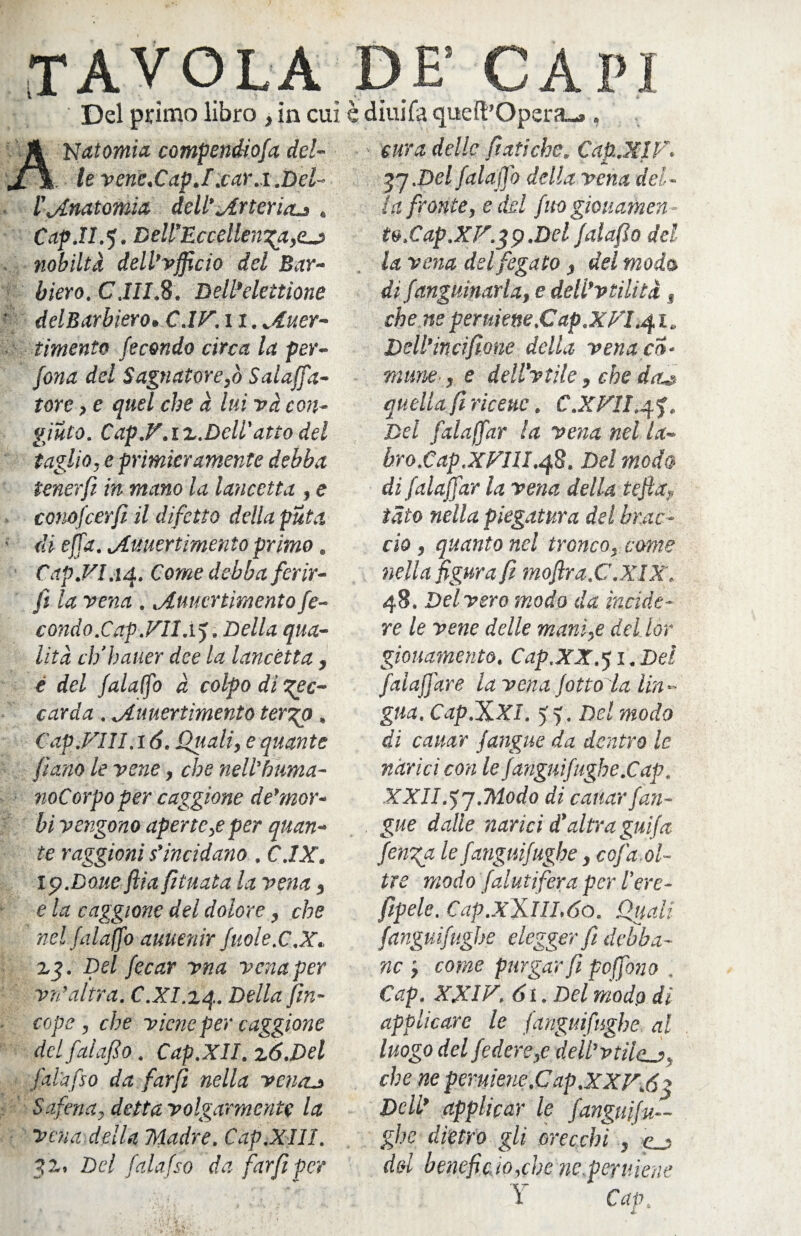 TAVOLA DE' CAPI
Del primo libro, in cui è diuisa quest'Opera.
ANatomia compendiosa del-
le vene. Cap. I. car. 1. Del-
l'Anatomia dell'Arteria.
Cap. II. 5. Dell'Eccellenza, e
nobiltà dell'vfficio del Bar-
biero. C. III. 8. Dell'elettione
del Barbiero. C. IV. 11. Auer-
timento secondo circa la per-
sona del Sagnatore, ò Salassa-
tore, e quel che à lui và con-
giũto. Cap. V. 12. Dell'atto del
taglio, e primieramente debba
tenersi in mano la lancetta, e
conoscersi il difetto della pũta
di essa. Auuertimento primo.
Cap. VI. 14. Come debba ferir-
si la vena. Auuertimento se-
condo. Cap. VII. 15. Della qua-
lità ch'hauer dee la lancetta,
e del salasso à colpo di zec-
carda. Auuertimento terzo.
Cap. VIII. 16. Quali, e quante
siano le vene, che nell'huma-
no Corpo per caggione de'mor-
bi vengono aperte, e per quan-
te raggioni s'incidano. C. IX.
19. Doue stia situata la vena,
e la caggione del dolore, che
nel salasso auuenir suole. C. X.
23. Del secar vna vena per
vn'altra. C. XI. 24. Della sin-
cope, che viene per caggione
del salasso. Cap. XII. 26. Del
salasso da farsi nella vena
Safena, detta volgarmente la
vena della Madre. Cap. XIII.
32. Del salasso da farsi per
cura delle sciatiche. Cap. XIV.
37. Del salasso della vena del-
la fronte, e del suo giouamen-
to. Cap. XV. 39. Del salasso del
la vena del fegato, del modo
di sanguinarla, e dell'vtilità,
che ne peruiene. Cap. XVI. 41.
Dell'incisione della vena cõ-
mune, e dell'vtile, che da
quella si riceue. C. XVII. 45.
Del salassar la vena nel la-
bro. Cap. XVIII. 48. Del modo
di salassar la vena della testa,
tãto nella piegatura del brac-
cio, quanto nel tronco, come
nella figura si mostra. C. XIX.
48. Del vero modo da incide-
re le vene delle mani, e del lor
giouamento. Cap. XX. 51. Del
salassare la vena sotto la lin-
gua. Cap. XXI. 55. Del modo
di cauar sangue da dentro le
narici con le sanguisughe. Cap.
XXII. 57. Modo di cauar san-
gue dalle narici d'altra guisa
senza le sanguisughe, cosa ol-
tre modo salutifera per l'ere-
sipele. Cap. XXIII. 60. Quali
sanguisughe elegger si debba-
no; come purgar si possono.
Cap. XXIV. 61. Del modo di
applicare le sanguisughe al
luogo del sedere, e dell'vtile,
che ne peruiene. Cap. XXV. 63
Dell' applicar le sanguisu-
ghe dietro gli orecchi, e
del beneficio, che ne peruiene
Y Cap.